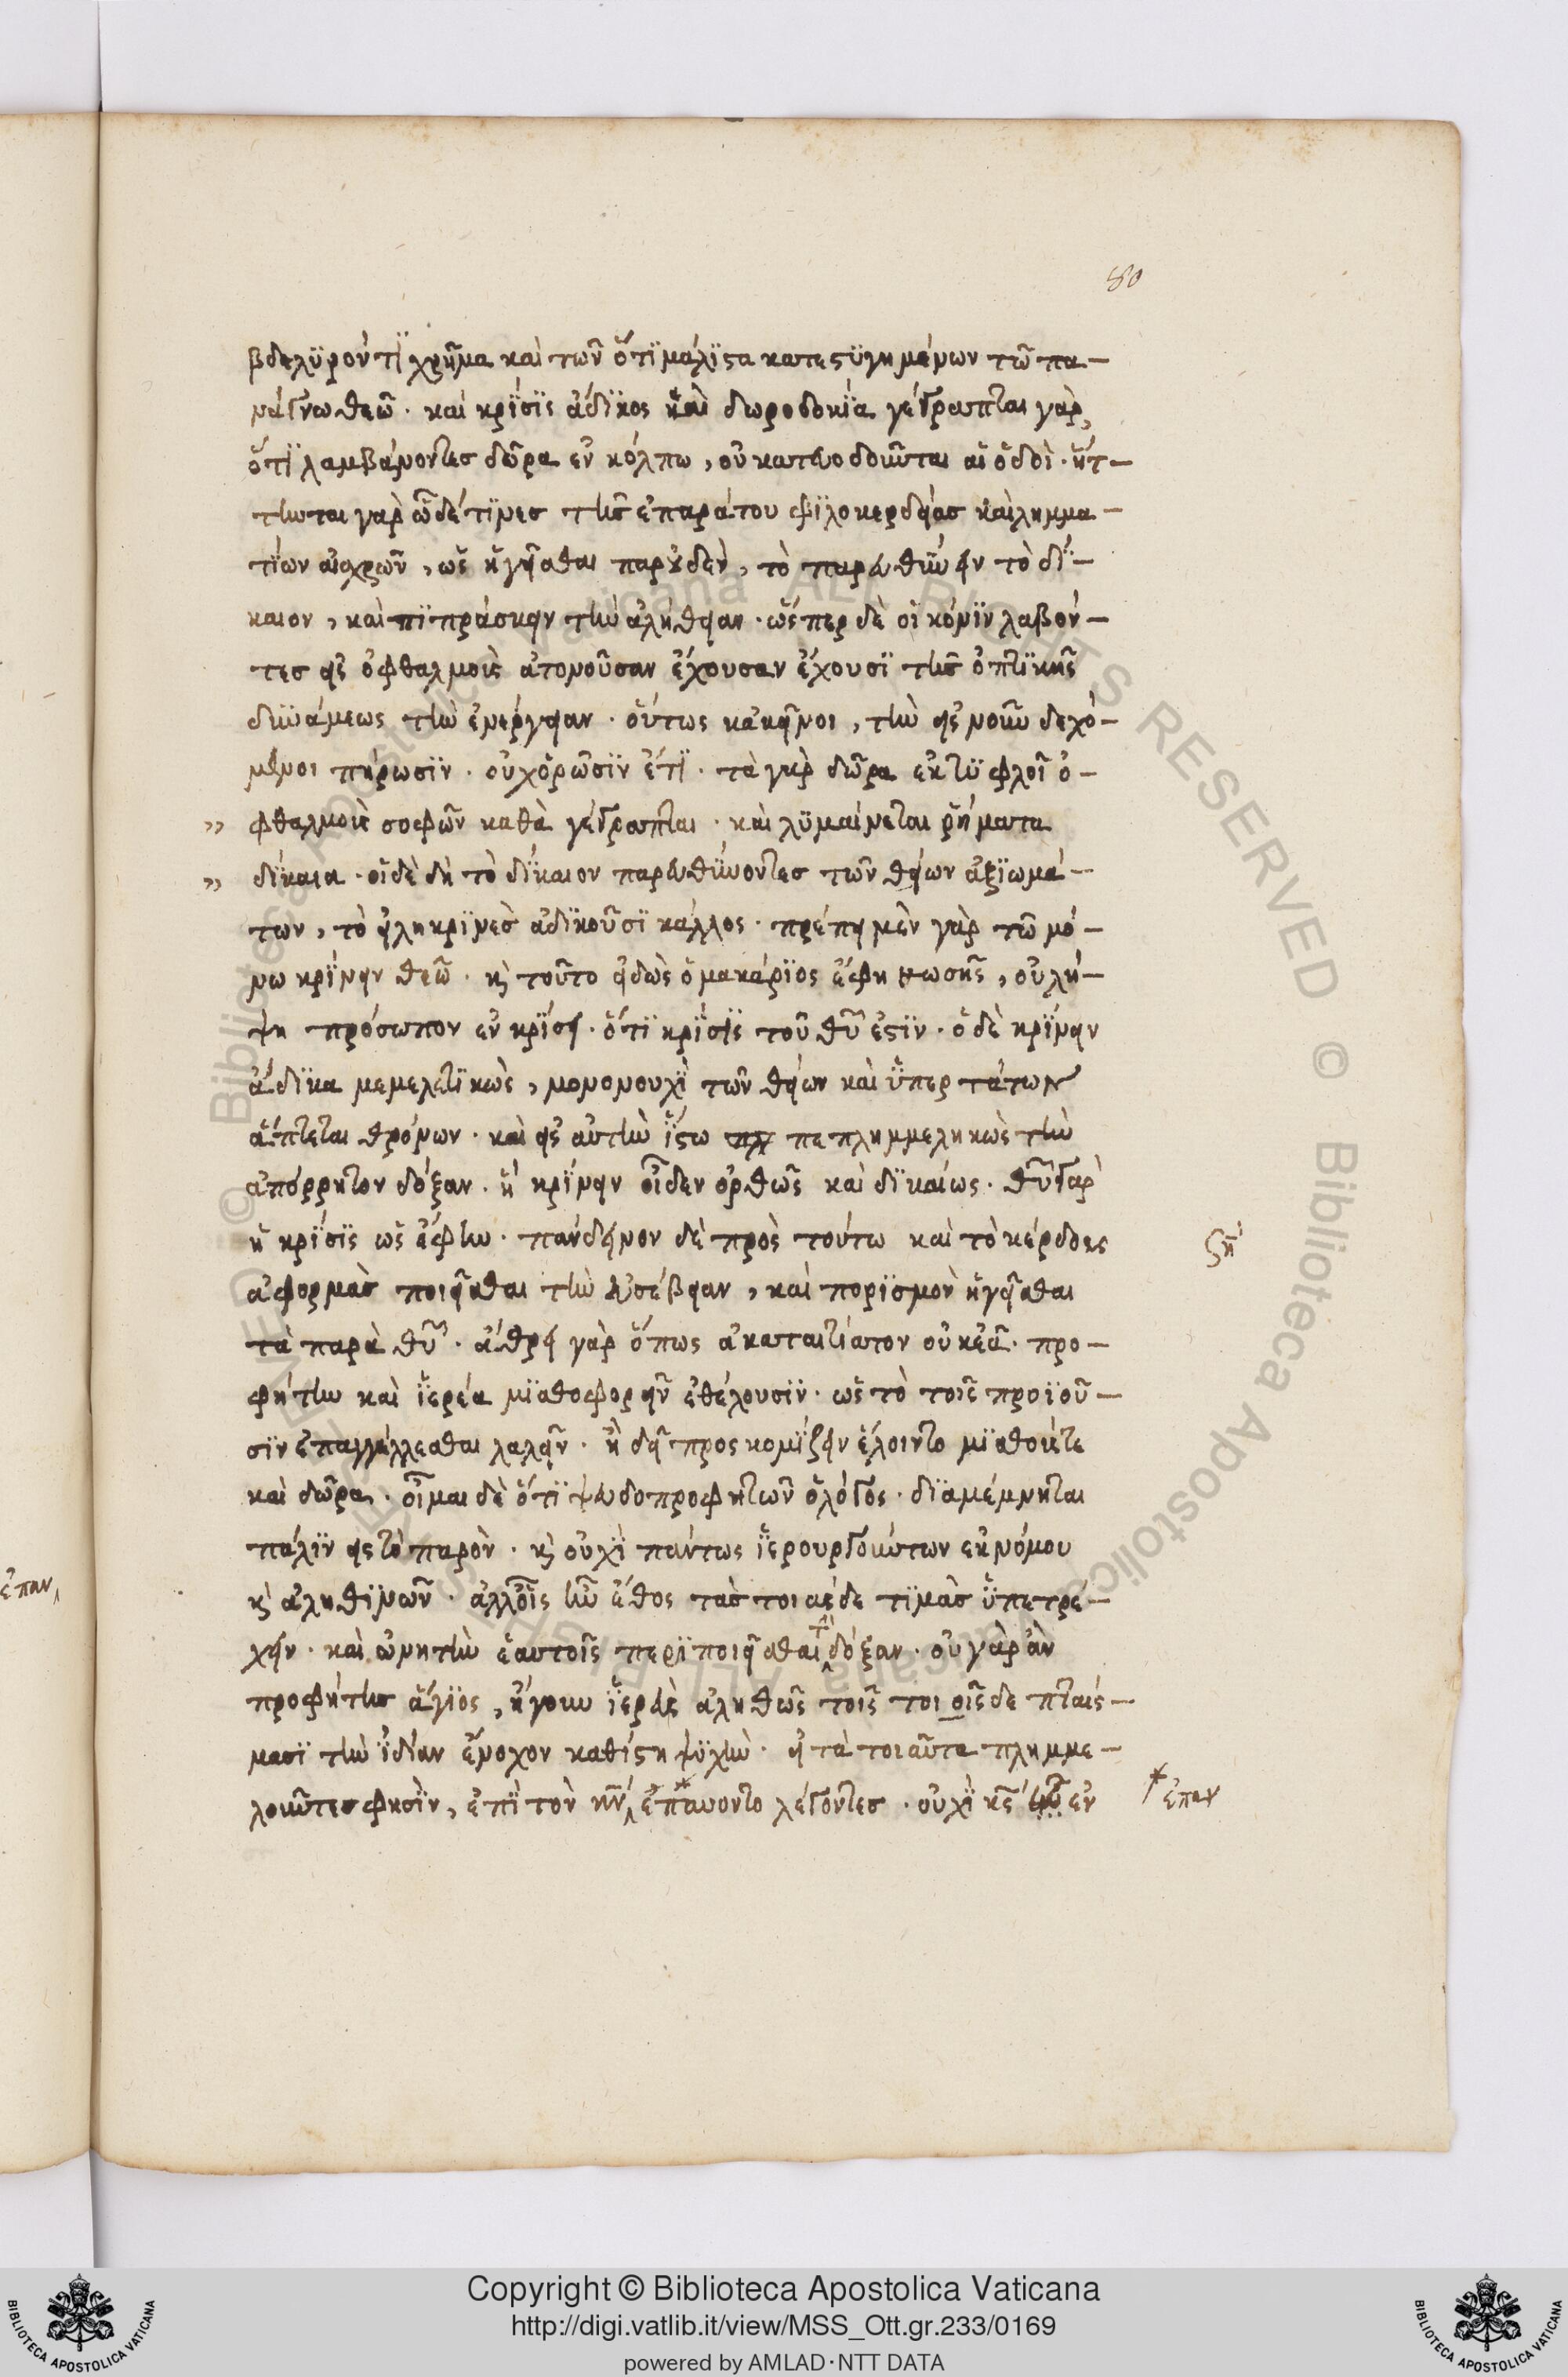 80
βδελϋρόν τϊ χρῆμα καὶ τῶν ὅτϊ μάλϊϛα κατεϛϋγημένων τῶ πα-
νάγνω θεῶ · καὶ κρΐσϊς ἄδϊκος καὶ δωροδοκΐα γέγραπται γὰρ,
ὅτϊ λαμβάνοντεσ δῶρα ἐν κόλπω, οὐ κατευοδοῦνται αἱ ὁδοὶ · ἥτ-
τηνται γὰρ ὧδέ τϊνεσ τῆς ἐπαράτου φϊλοκερδείασ καὶ λημμα-
τΐων αἰσχρῶν, ὡς ἡγεῖσθαι παρ' οὐδὲν, τὸ παρευθΰνειν τὸ δΐ-
καιον, καὶ πϊπράσκειν τὴν ἀλήθειαν · ὥσπερ δὲ οἱ κόνϊν λαβόν-
τεσ εἰς ὀφθαλμοὺς ἀτονοῦσαν ἔχουσαν ἔχουσϊ τῆς ὀπτϊκῆς
δϋνάμεως τὴν ἐνέργειαν · οὕτως κἀκεῖνοι, τὴν εἰς νοῦν δεχό-
μενοι πήρωσϊν · οὐχ ὁρῶσϊν ἔτϊ · τὰ γὰρ δῶρα ἐκτϋφλοῖ ὀ-
" φθαλμοὺς σοφῶν καθὰ γέγραπται · καὶ λϋμαίνεται ῥήματα
" δίκαια · οἱ δὲ δὴ τὸ δΐκαιον παρευθΰνοντεσ τῶν θείων ἀξϊωμά-
των, τὸ εἰληκρϊνὲσ ἀδϊκοῦσϊ κάλλος · πρέπει μὲν γὰρ τῶ μό-
νω κρΐνειν θεῶ · κ̀ τοῦτο εἰδὼς ὁ μακάρϊος ἔφη μωσῆς, οὐ λή-
ψη πρόσωπον ἐν κρΐσει · ὅτϊ κρΐσϊς τοῦ θυ ἐϛϊν · ὁ δὲ κρΐνειν
ἄδϊκα μεμελετϊκὼς, μονονουχῒ τῶν θείων καὶ ὑπερτάτων
ἅπτεται θρόνων · καὶ εἰς αὐτὴν ἴϛω πεπλημμεληκὼς τὴν
ἀπόρρητον δόξαν · ἣ κρΐνειν οἶδεν ὀρθῶς καὶ δϊκαίως · θυ γὰρ
ἡ κρΐσϊς ὡς ἔφην · πάνδεινον δὲ πρὸς τούτω καὶ τὸ κέρδους
ἀφορμὰσ ποιεῖσθαι τὴν εὐσέβειαν, καὶ πορϊσμὸν ἡγεῖσθαι
τὰ παρὰ θυ · ἄθρει γὰρ ὅπως ἀκαταιτίατον οὐκ ἐᾶ · προ-
φήτην καὶ ἱερέα μϊσθοφορεῖν ἐθέλουσϊν · ὡς τὸ τοῖς προϊοῦ-
σϊν ἐπαγγέλλεσθαι λαλεῖν · ἢ δεῖ προσκομΐζειν ἕλοιντο μϊσθούς τε
καὶ δῶρα · οἶμαι δὲ ὅτϊ ψευδοπροφητῶν ὁ λόγος · δϊαμέμνηται
πάλϊν εἰς τὸ παρὸν · κ̀ οὐχῒ πάντως ἱερουργούντων ἐκ νόμου
κ̀ ἀληθϊνῶν · ἀλλ' οἷς ἦν ἔθος τὰσ τοιάσδε τϊμὰσ ὑπετρέ-
χειν · καὶ ὠνητὴν ἑαυτοῖς περϊποιεῖσθαι δόξαν · οὐ γὰρ ἂν
προφήτης ἅγϊος, ἤγουν ἱερεὺς ἀληθῶς τοῖς τοιοῖσδε πταίς-
μασϊ τὴν ἰδίαν ἔνοχον καθίϛη ψϋχὴν · εἰ τὰ τοιαῦτα πλημμε-
λοῦντεσ φησῒν, ἐπῒ τὸν κν ἐπαύοντο λέγοντεσ · οὐχῒ κς ἐν
ϛη
ἐπαν
ἐπαν
Copyright © Biblioteca Apostolica Vaticana
http://digi.vatlib.it/view/MSS_Ott.gr.233/0169
powered by AMLAD·NTT DATA